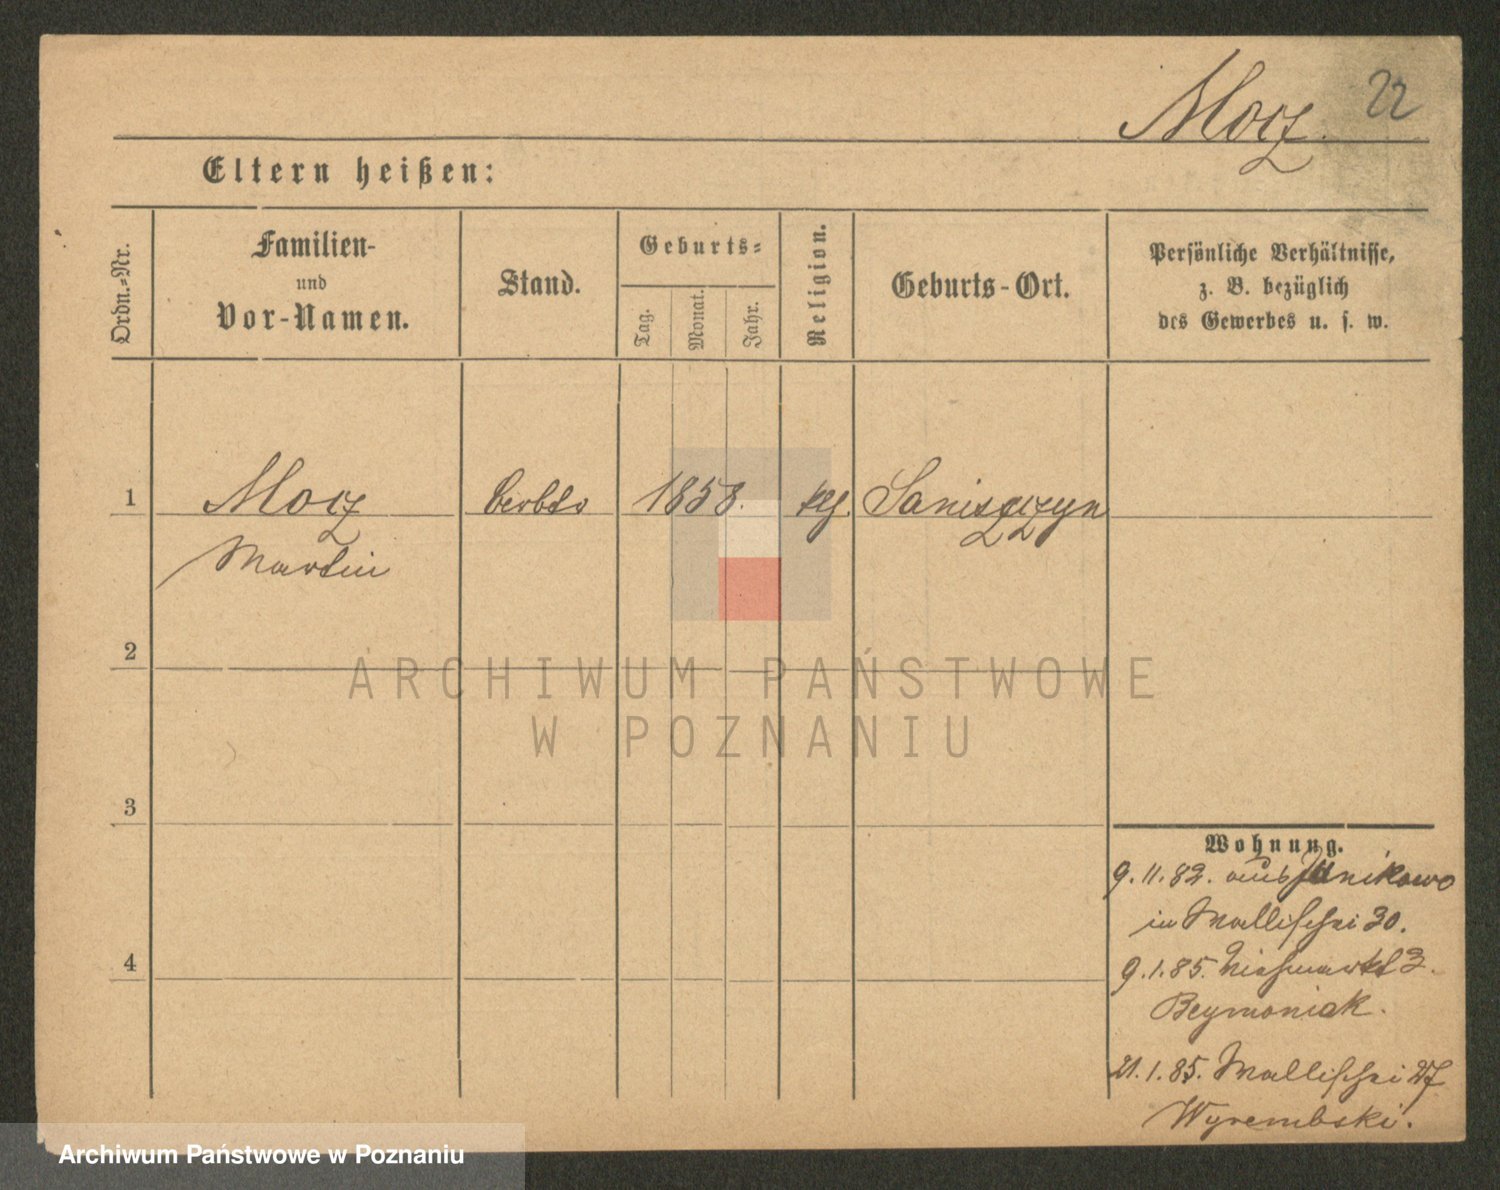 22
Mocz.
Eltern heißen:
Ordn.-Nr.
Familien-
und
Vor-Namen.
Stand.
Geburts-
Tag.
Monat.
Jahr.
Religion.
Geburts-Ort.
Persönliche Verhältnisse,
z. B. bezüglich
des Gewerbes u. s. w.
1
Mocz
Martin
1858.
Saniszczyn
2
3
4
Wohnung.
9.11.82. aus Junikowo
in Wallischei 30.
9.1.85. Viehmarkt 3.
21.1.85. Wallischei 27
Wyrembski.
ARCHIWUM PAŃSTWOWE
W POZNANIU
Archiwum Państwowe w Poznaniu